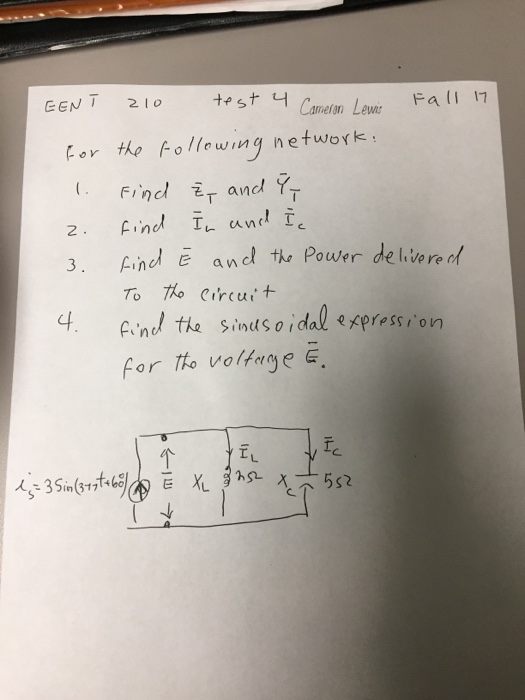 EENT 210 test 4 Cameron Lewis Fall 17
For the following network:
1. Find Z̄T and ȲT
2. find ĪL and Īc
3. find Ē and the Power delivered
To the circuit
4. find the sinusoidal expression
for the voltage Ē.
ĪL Īc
is = 3 Sin(377t+60°) Ē XL 2Ω Xc 5Ω